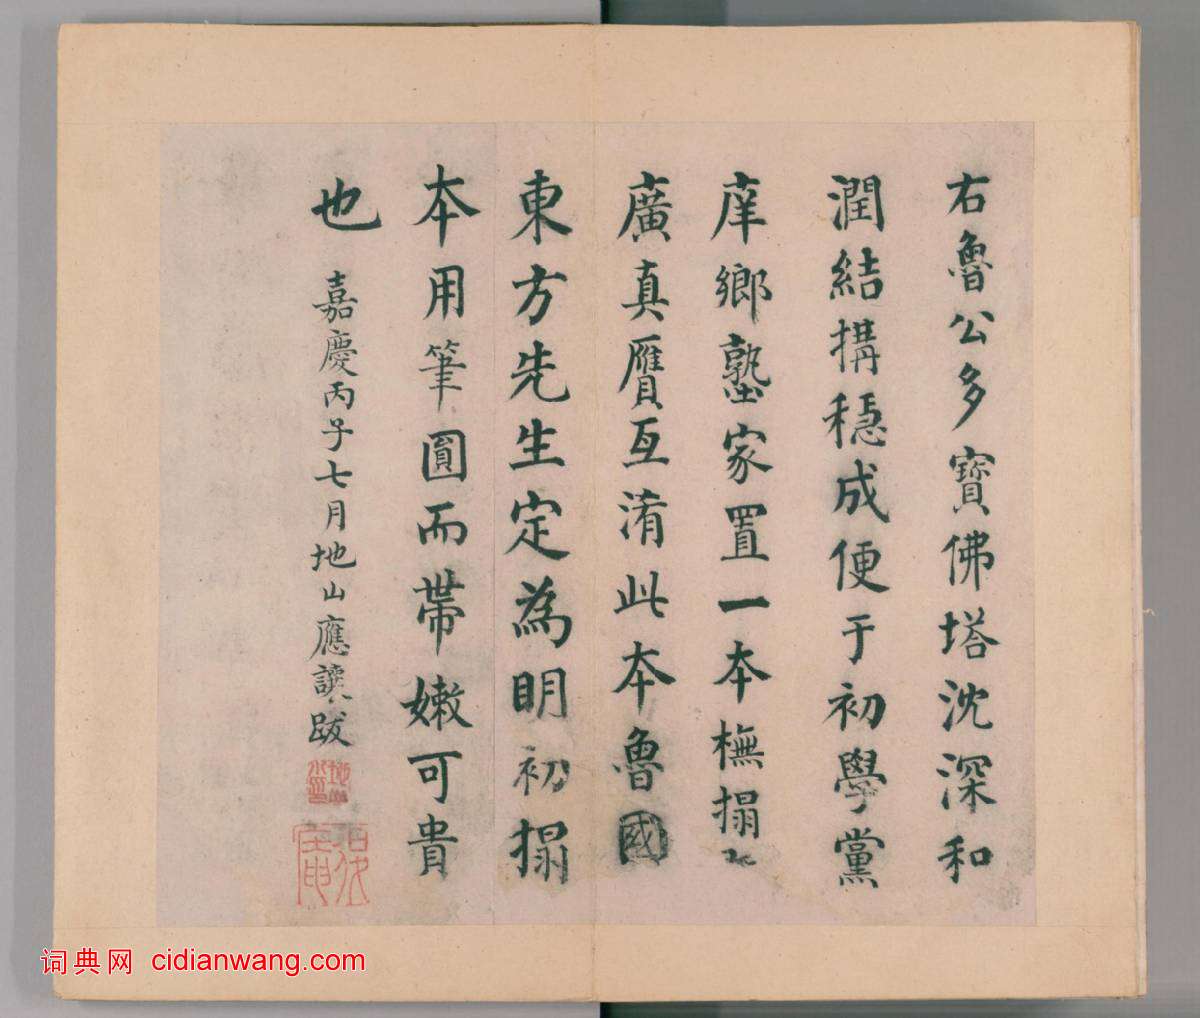 右魯公多寶佛塔沈深和
潤結搆穩成便于初學黨
庠鄉塾家置一本橅搨
廣真贋互淆此本魯國
東方先生定為明初搨
本用筆圓而帶嫩可貴
也 嘉慶丙子七月地山應讓跋
词典网 cidianwang.com